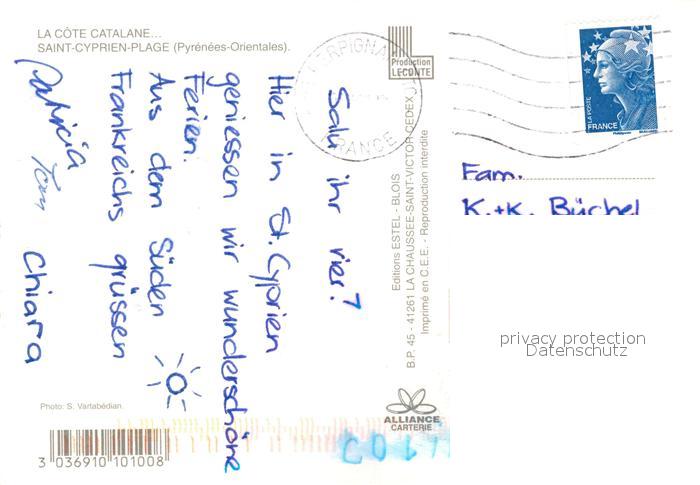 LA CÔTE CATALANE...
SAINT-CYPRIEN-PLAGE (Pyrénées-Orientales).
Salü ihr vier!
Hier in St. Cyprien
geniessen wir wunderschöne
Ferien.
Aus dem Süden
Frankreichs grüssen
Patricia Tom Chiara
Photo: S. Vartabédian.
3 036910 101008
Production
LECONTE
PERPIGNAN
FRANCE
Editions ESTEL - BLOIS
B.P. 45 - 41261 LA CHAUSSEE-SAINT-VICTOR CEDEX
Imprimé en C.E.E. - Reproduction interdite
ALLIANCE
CARTERIE
LA POSTE
FRANCE
Fam.
K.+K. Büchel
privacy protection
Datenschutz